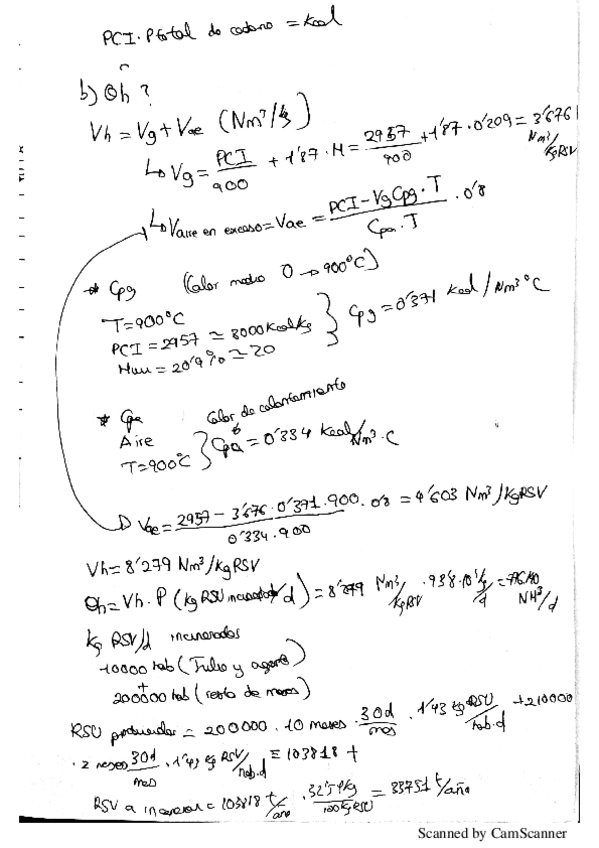 PCI · Ptotal de = Kcal
b) Qh ?
Vh = Vg + Vae (Nm³/kg)
↳ Vg = PCI/900 + 1'87 · H = 2957/900 + 1'87 · 0'209 = 3'676 Nm³/kg RSU
↳ Vaire en exceso = Vae = (PCI - Vg Cpg · T)/(Cpa · T) · 0'8
* Cpg (Calor medio 0 → 900°C)
T = 900°C
PCI = 2957 ≃ 3000 Kcal/kg
Hum = 20'9% ≃ 20
Cpg = 0'371 Kcal/Nm³ °C
* Cpa Calor de calentamiento
Aire
T = 900°C
Cpa = 0'334 Kcal/Nm³ · C
Vae = (2957 - 3'676 · 0'371 · 900)/(0'334 · 900) · 0'8 = 4'603 Nm³/kg RSU
Vh = 8'279 Nm³/kg RSU
Qh = Vh · P (kg RSU incinerados/d) = 8'279 Nm³/kg RSU
kg RSU/d incinerados
10000 hab (Julio y agosto)
+
200000 hab (resto de meses)
RSU producidos = 200000 · 10 meses · 30d/mes · 1'43 kg RSU/hab.d + 210000
· 2 meses 30d/mes · 1'43 kg RSU/hab.d = 103818 t
RSU a incinerar = 103818 t/año · 32'51 kg/100 kg RSU = 33751 t/año
Scanned by CamScanner